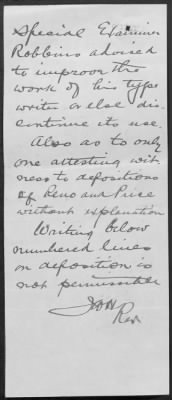 Special Examiner
Robbins advised
to improve the
work of his type
writer or else dis-
continue its use.
Also as to only
one attesting wit
ness to depositions
of Reno and Price
without explanation
Writing below
numbered lines
on deposition is
not permissible
Rev